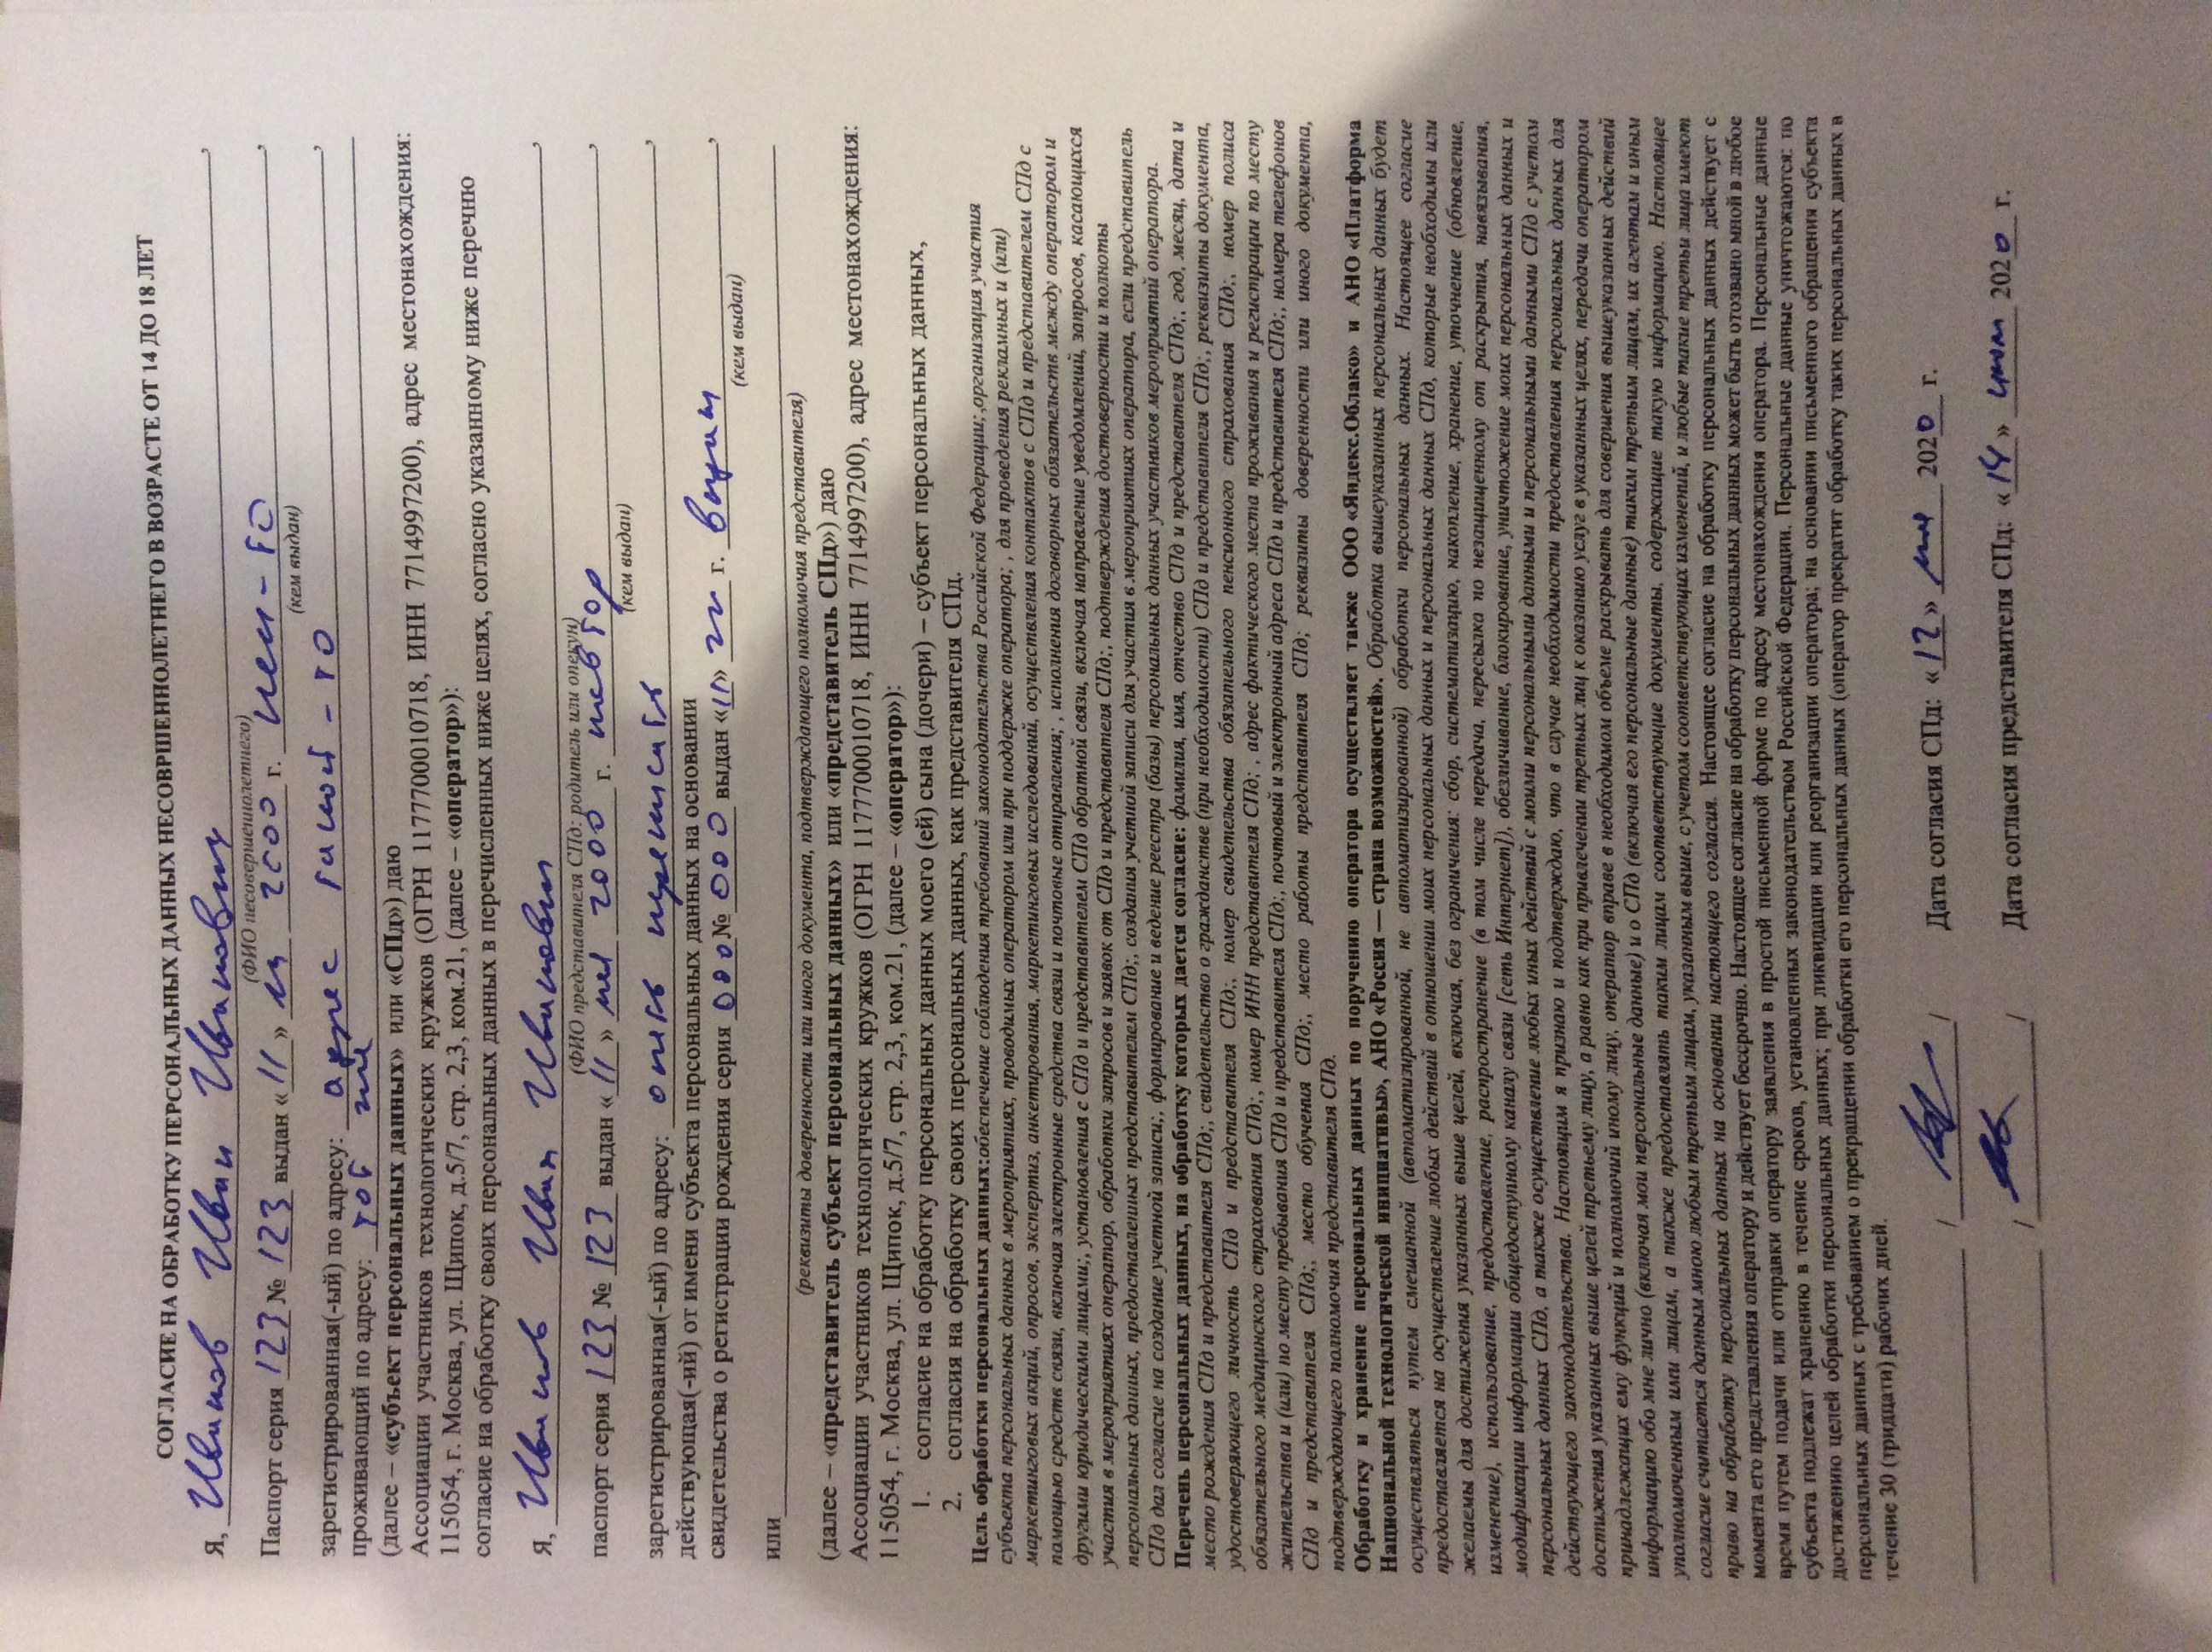 СОГЛАСИЕ НА ОБРАБОТКУ ПЕРСОНАЛЬНЫХ ДАННЫХ НЕСОВРШЕННОЛЕТНЕГО В ВОЗРАСТЕ ОТ 14 ДО 18 ЛЕТ
Я, Иванов Иван Иванович,
(ФИО несовершеннолетнего)
Паспорт серия 123 № 123 выдан «11» 2000 г. кем-то,
(кем выдан)
зарегистрированная(-ый) по адресу: адрес такой-то,
проживающий по адресу: тот же
(далее – «субъект персональных данных» или «СПд») даю
Ассоциации участников технологических кружков (ОГРН 1177700010718, ИНН 7714997200), адрес местонахождения:
115054, г. Москва, ул. Щипок, д.5/7, стр. 2,3, ком.21, (далее – «оператор»):
согласие на обработку своих персональных данных в перечисленных ниже целях, согласно указанному ниже перечню
Я, Иванов Иван Иванович,
(ФИО представителя СПд: родитель или опекун)
паспорт серия 123 № 123 выдан «11» мая 2000 г.,
(кем выдан)
зарегистрированная(-ый) по адресу: опять,
действующая(-ий) от имени субъекта персональных данных на основании
свидетельства о регистрации рождения серия 000 № 000 выдан «11» г.,
(кем выдан)
или
(реквизиты доверенности или иного документа, подтверждающего полномочия представителя)
(далее – «представитель субъект персональных данных» или «представитель СПд») даю
Ассоциации участников технологических кружков (ОГРН 1177700010718, ИНН 7714997200), адрес местонахождения:
115054, г. Москва, ул. Щипок, д.5/7, стр. 2,3, ком.21, (далее – «оператор»):
1. согласие на обработку персональных данных моего (ей) сына (дочери) – субъект персональных данных,
2. согласия на обработку своих персональных данных, как представителя СПд.
Цель обработки персональных данных:обеспечение соблюдения требований законодательства Российской Федерации;,организация участия
субъекта персональных данных в мероприятиях, проводимых оператором или при поддержке оператора; , для проведения рекламных и (или)
маркетинговых акций, опросов, экспертиз, анкетирования, маркетинговых исследований, осуществления контактов с СПд и представителем СПд с
помощью средств связи, включая электронные средства связи и почтовые отправления; , исполнения договорных обязательств между оператором и
другими юридическими лицами;, установления с СПд и представителем СПд обратной связи, включая направление уведомлений, запросов, касающихся
участия в мероприятиях оператор, обработки запросов и заявок от СПд и представителя СПд;, подтверждения достоверности и полноты
персональных данных, предоставленных представителем СПд;, создания учетной записи для участия в мероприятиях оператора, если представитель
СПд дал согласие на создание учетной записи;, формирование и ведение реестра (базы) персональных данных участников мероприятий оператора.
Перечень персональных данных, на обработку которых дается согласие: фамилия, имя, отчество СПд и представителя СПд;, год, месяц, дата и
место рождения СПд и представителя СПд;, свидетельство о гражданстве (при необходимости) СПд и представителя СПд;, реквизиты документа,
удостоверяющего личность СПд и представителя СПд;, номер свидетельства обязательного пенсионного страхования СПд;, номер полиса
обязательного медицинского страхования СПд;, номер ИНН представителя СПд; , адрес фактического места проживания и регистрации по месту
жительства и (или) по месту пребывания СПд и представителя СПд;, почтовый и электронный адреса СПд и представителя СПд;, номера телефонов
СПд и представителя СПд;, место обучения СПд;, место работы представителя СПд; реквизиты доверенности или иного документа,
подтверждающего полномочия представителя СПд.
Обработку и хранение персональных данных по поручению оператора осуществляет также ООО «Яндекс.Облако» и АНО «Платформа
Национальной технологической инициативы», АНО «Россия — страна возможностей». Обработка вышеуказанных персональных данных будет
осуществляться путем смешанной (автоматизированной, не автоматизированной) обработки персональных данных. Настоящее согласие
предоставляется на осуществление любых действий в отношении моих персональных данных и персональных данных СПд, которые необходимы или
желаемы для достижения указанных выше целей, включая, без ограничения: сбор, систематизацию, накопление, хранение, уточнение (обновление,
изменение), использование, предоставление, распространение (в том числе передача, пересылка по незащищенному от раскрытия, навязывания,
модификации информации общедоступному каналу связи [сеть Интернет]), обезличивание, блокирование, уничтожение моих персональных данных и
персональных данных СПд, а также осуществление любых иных действий с моими персональными данными и персональными данными СПд с учетом
действующего законодательства. Настоящим я признаю и подтверждаю, что в случае необходимости предоставления персональных данных для
достижения указанных выше целей третьему лицу, а равно как при привлечении третьих лиц к оказанию услуг в указанных целях, передачи оператором
принадлежащих ему функций и полномочий иному лицу, оператор вправе в необходимом объеме раскрывать для совершения вышеуказанных действий
информацию обо мне лично (включая мои персональные данные) и о СПд (включая его персональные данные) таким третьим лицам, их агентам и иным
уполномоченным ими лицам, а также предоставлять таким лицам соответствующие документы, содержащие такую информацию. Настоящее
согласие считается данным мною любым третьим лицам, указанным выше, с учетом соответствующих изменений, и любые такие третьи лица имеют
право на обработку персональных данных на основании настоящего согласия. Настоящее согласие на обработку персональных данных действует с
момента его представления оператору и действует бессрочно. Настоящее согласие на обработку персональных данных может быть отозвано мной в любое
время путем подачи или отправки оператору заявления в простой письменной форме по адресу местонахождения оператора. Персональные данные
субъекта подлежат хранению в течение сроков, установленных законодательством Российской Федерации. Персональные данные уничтожаются: по
достижению целей обработки персональных данных; при ликвидации или реорганизации оператора; на основании письменного обращения субъекта
персональных данных с требованием о прекращении обработки его персональных данных (оператор прекратит обработку таких персональных данных в
течение 30 (тридцати) рабочих дней.
/ / Дата согласия СПд: «12» мая 2020 г.
/ / Дата согласия представителя СПд: «14» 2020 г.